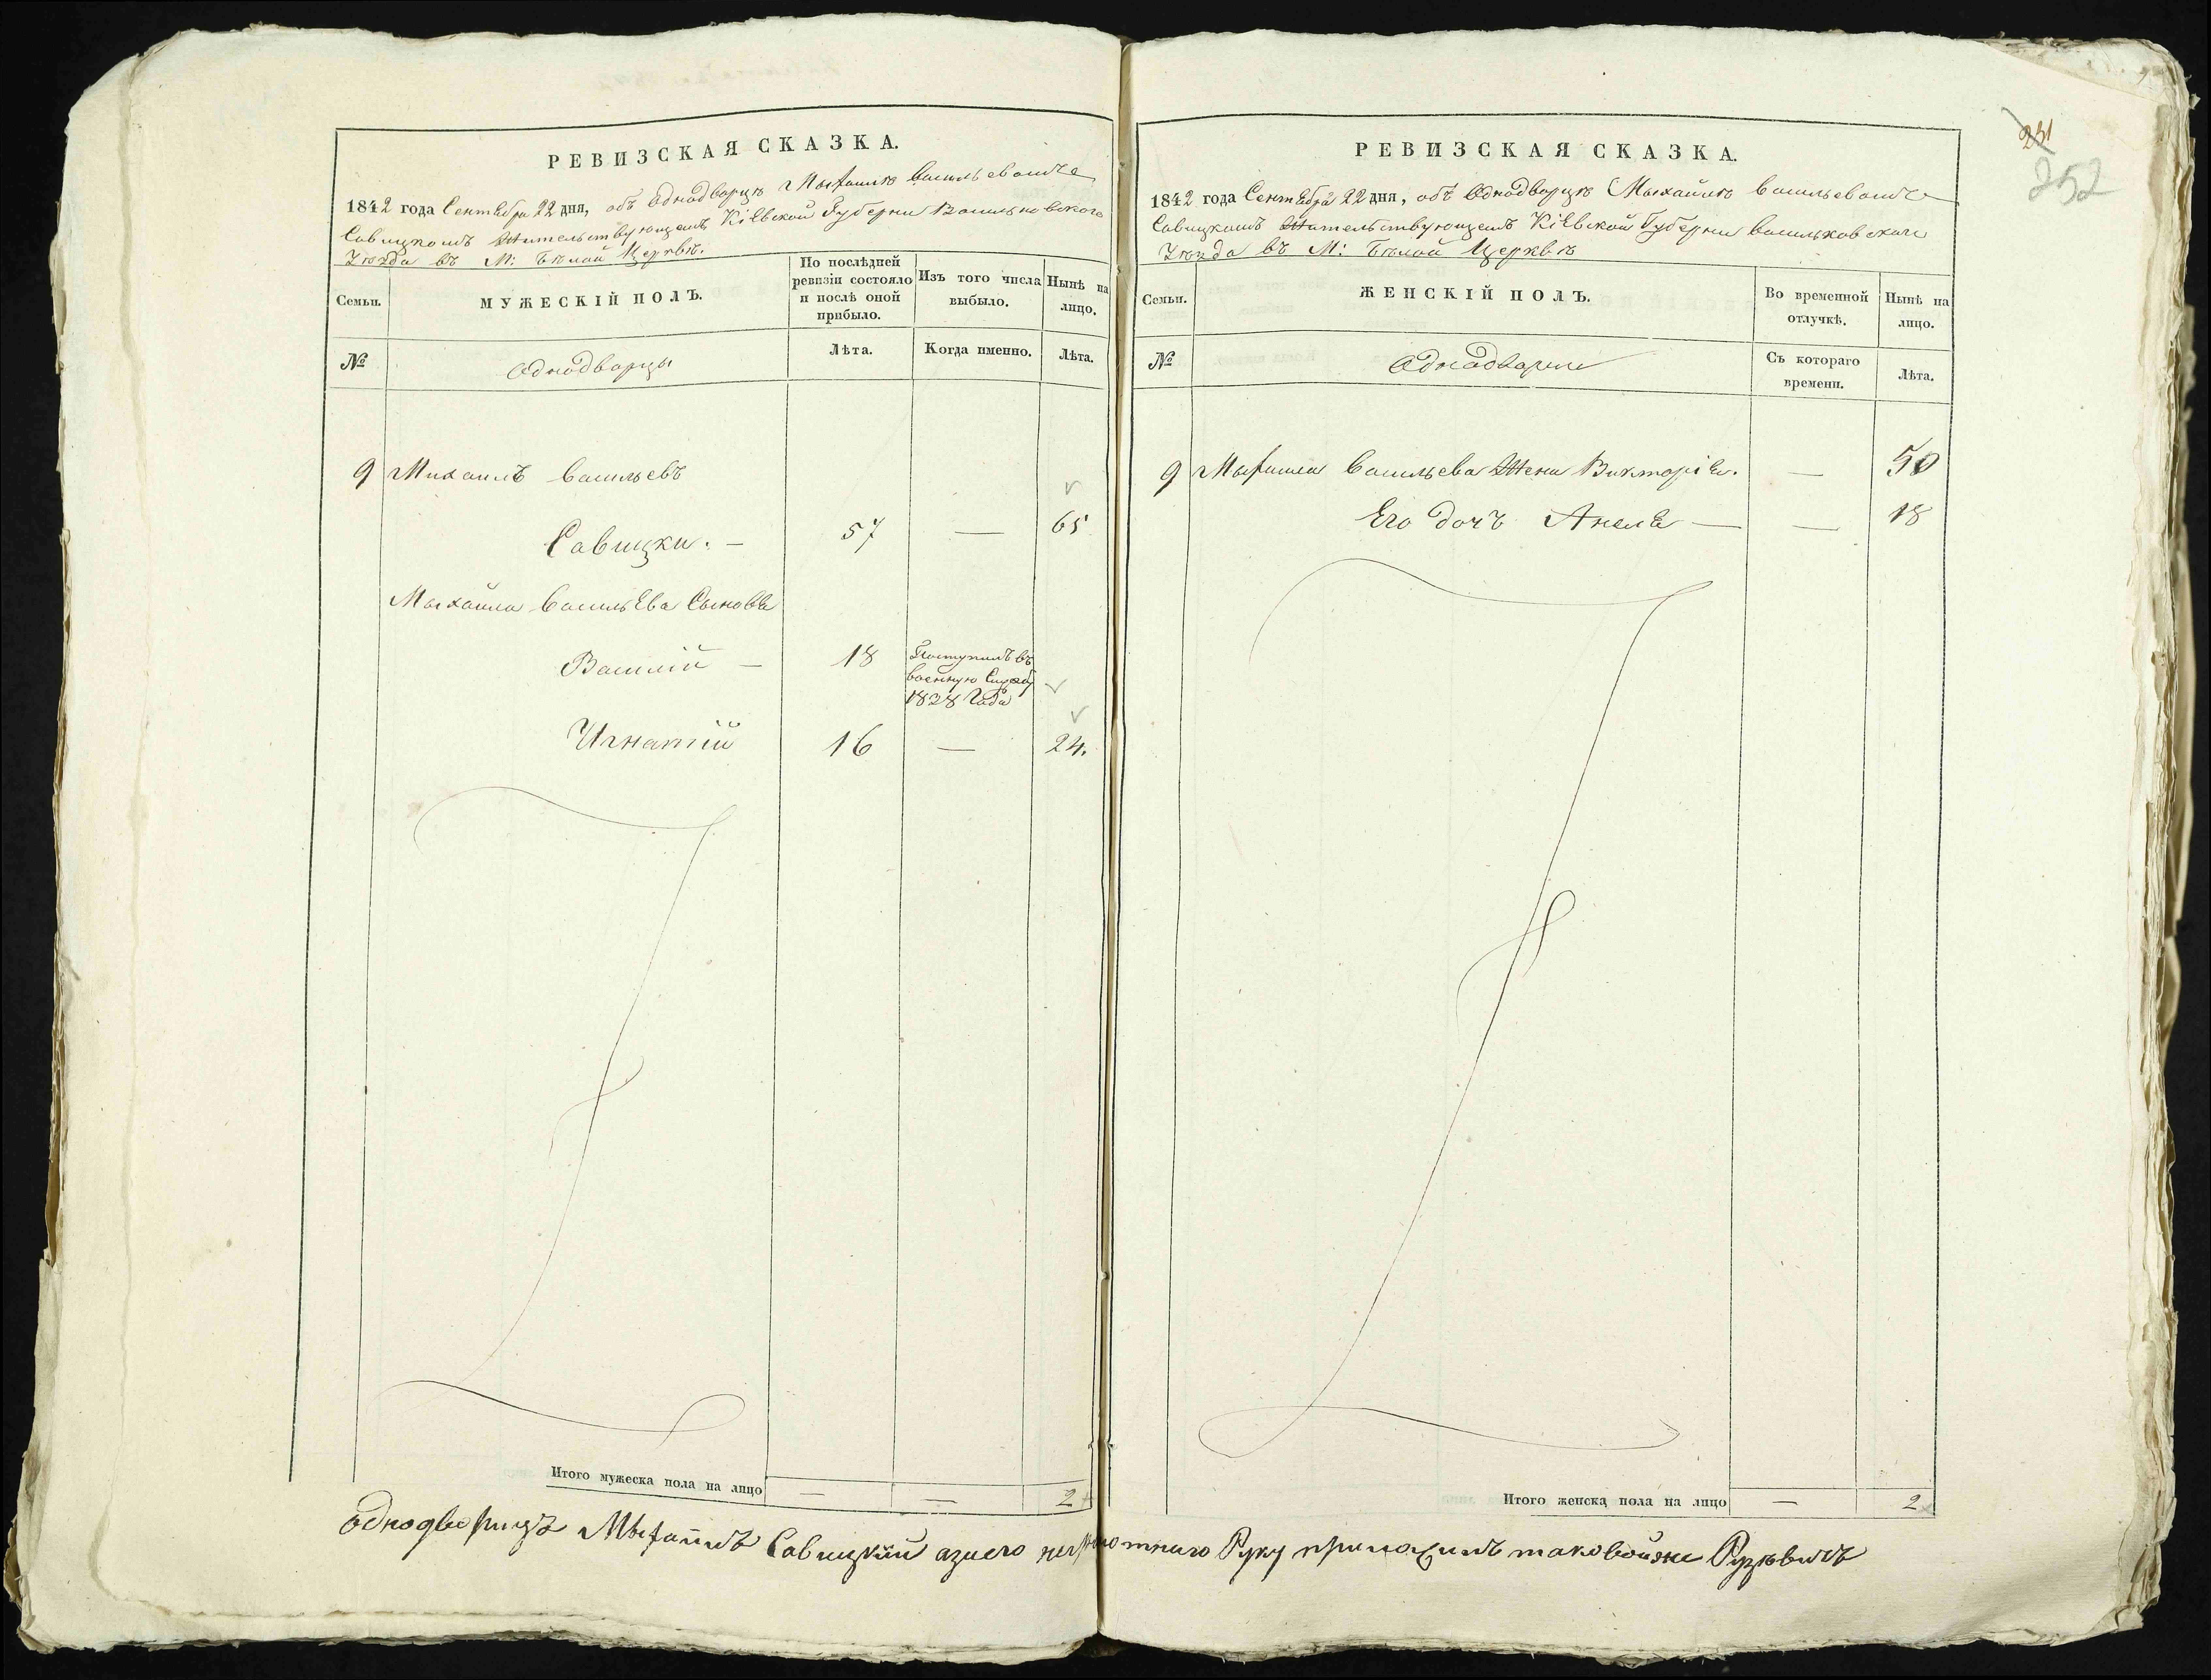 РЕВИЗСКАЯ СКАЗКА.
1842 года Сентебра 22 дня, объ Однодворце Мыхаиле Васильевиче
Савицкомъ Жительствующемъ Кіевской Губерни Васильковского
Уезда въ М: Белой Церкве.
Семьи.
МУЖЕСКІЙ ПОЛЪ.
По послѣдней ревизіи состояло и послѣ оной прибыло.
Изъ того числа выбыло.
Нынѣ на лицо.
№
Однодворцы
Лѣта.
Когда именно.
Лѣта.
9 Михаилъ Васильевъ
Савицки. — 57 — 65
Михайла Васильева Сыновъя
Василій — 18 Поступилъ въ
военную Службу
1828 Года
Игнатій 16 — 24.
Итого мужеска пола на лицо — — 2
РЕВИЗСКАЯ СКАЗКА.
231
252
1842 года Сентебра 22 дня, объ Однодворце Мыхайле Васильевиче
Савицкомъ Жительствующемъ Кіевской Губерни Васильковскаго
Уезда въ М: Белой Церкве
Семьи.
ЖЕНСКІЙ ПОЛЪ.
Во временной отлучкѣ.
Нынѣ на лицо.
№
Однодворки
Съ котораго времени.
Лѣта.
9 Мыхаила Васильева Жена Викторіе. — 50
Его дочъ Анеле — — 18
Итого женска пола на лицо — 2
однодворицъ Мыхайлъ Савицкій азаего неграмотнаго Руку приложилъ таковойже